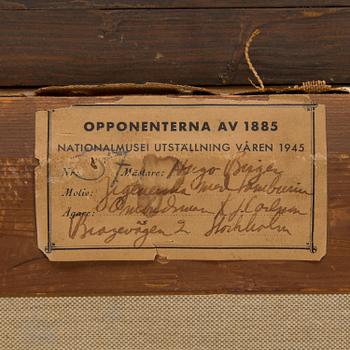 OPPONENTERNA AV 1885
NATIONALMUSEI UTSTÄLLNING VÅREN 1945
Nr: Mästare: Hugo Birger
Motiv: Zigenerska med tamburin
Ägare: Ombudsman Carlson
Bragevägen 2 Stockholm